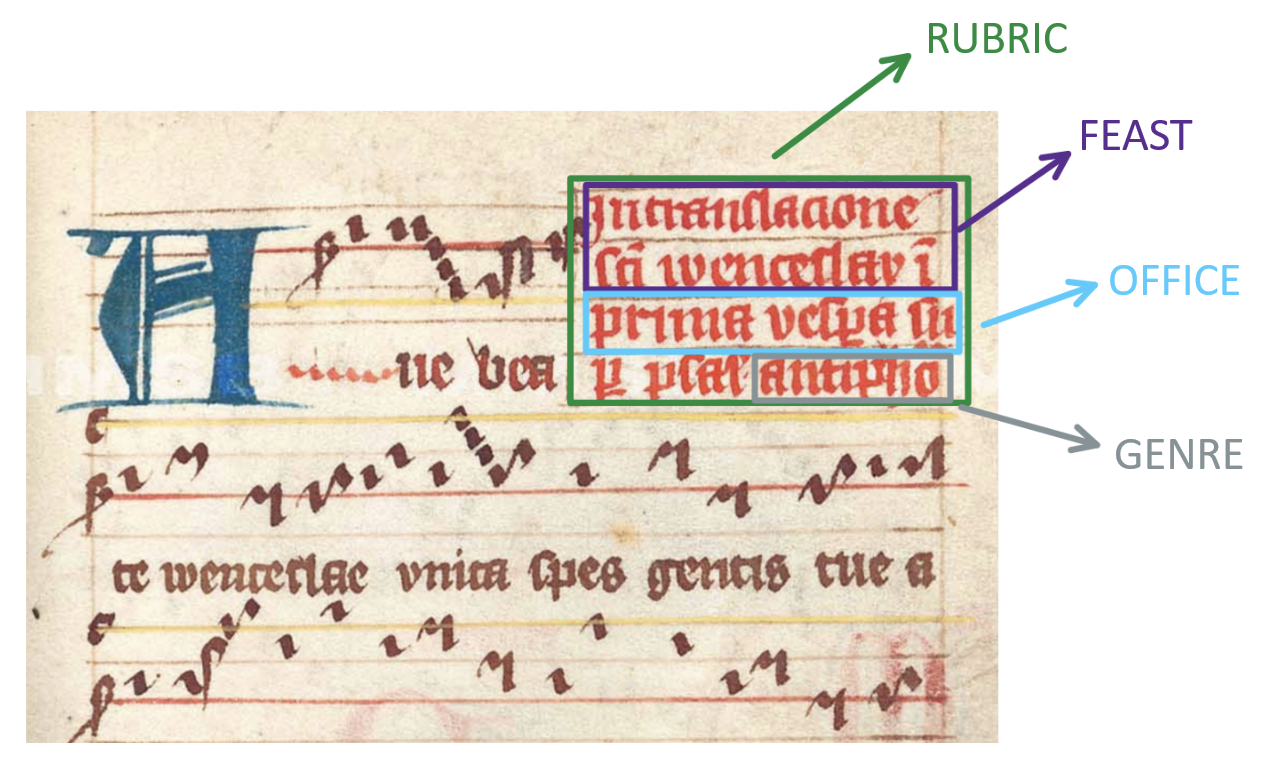 RUBRIC
FEAST
OFFICE
GENRE
Intranslacione
sci̅ wenceslay i̅
prima vesꝑa su
ꝑ psal antipho
Aue bea
te wenceslae vnica spes gentis tue a